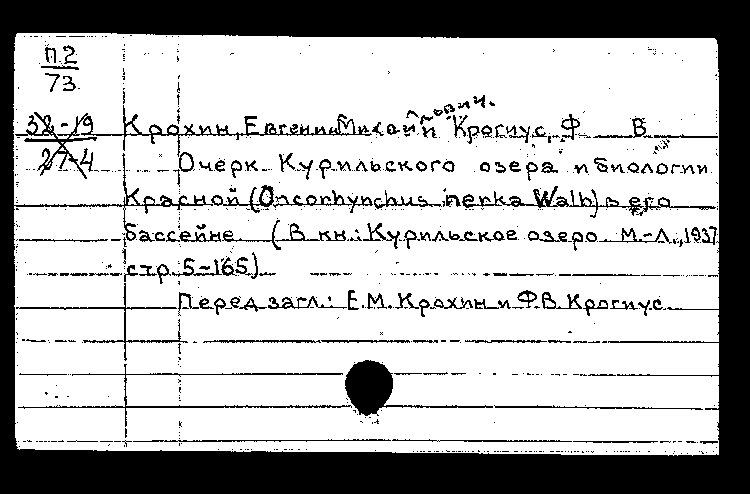 П.2
73
32-19
27-4
Крохин, Евгений Михайлович. и Крогиус, Ф В
Очерк Курильского озера и биологии
Красной (Oncorhynchus nerka Walb) в его
бассейне. (В кн.: Курильское озеро. М.-Л., 1937
стр. 5-165)
Перед загл.: Е.М. Крохин и Ф.В. Крогиус.